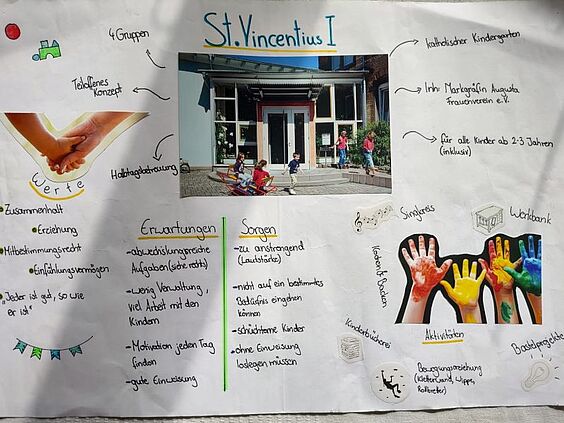 St. Vincentius I
4 Gruppen
Teiloffenes
Konzept
Halbtagsbetreuung
katholischer Kindergarten
Inh: Markgräfin Augusta
Frauenverein e.V.
für alle Kinder ab 2-3 Jahren
(inklusiv)
Werte
Zusammenhalt
Erziehung
Mitbestimmungsrecht
Einfühlungsvermögen
"Jeder ist gut, so wie
er ist"
Erwartungen
-abwechslungsreiche
Aufgaben (siehe rechts)
-wenig Verwaltung,
viel Arbeit mit den
Kindern
-Motivation jeden Tag
finden
-gute Einweisung
Sorgen
-zu anstrengend
(Lautstärke)
-nicht auf ein bestimmtes
Bedürfnis eingehen
können
-schüchterne Kinder
-ohne Einweisung
loslegen müssen
Singkreis
Werkbank
Kochen & Backen
Aktivitäten
Kinderbücherei
Bewegungserziehung
(Kletterwand, Wippe,
Rollbretter)
Bastelprojekte